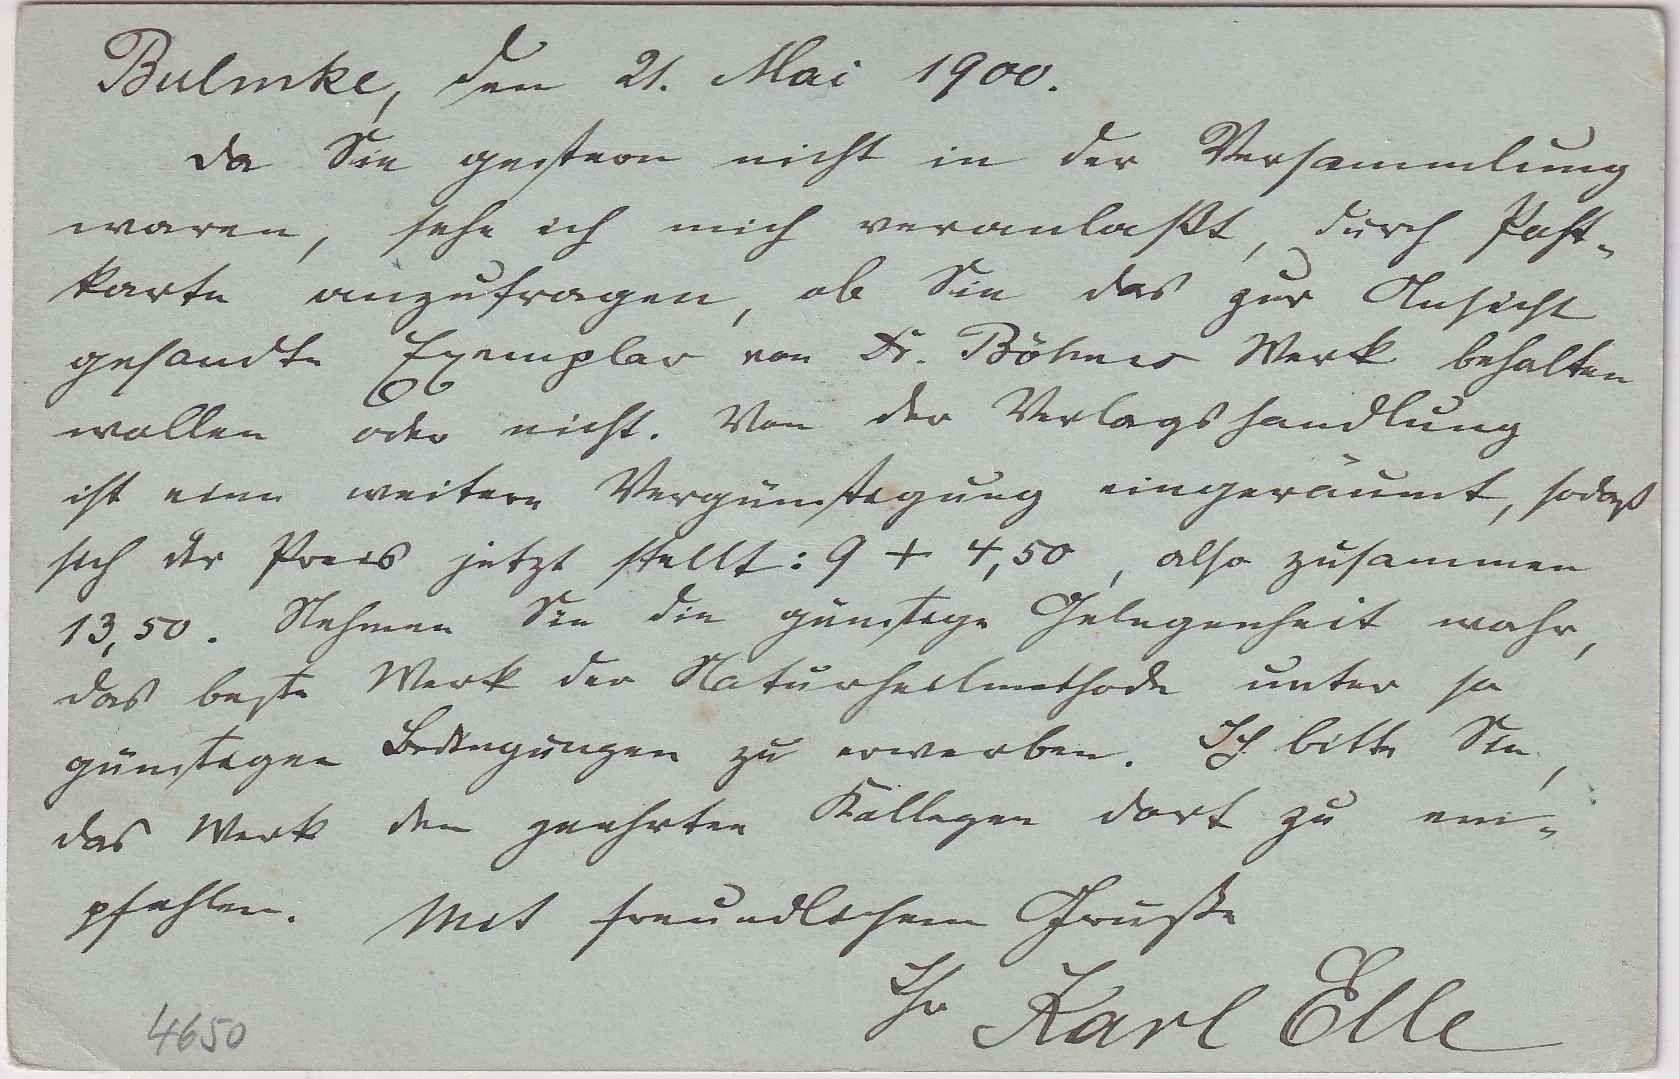 Bulmke, den 21. Mai 1900.
Da Sie gestern nicht in der Versammlung
waren, sehe ich mich veranlaßt, durch Post-
karte anzufragen, ob Sie das zur Ansicht
gesandte Exemplar von Dr. Böhmes Werk behalten
wollen oder nicht. Von der Verlagshandlung
ist eine weitere Vergünstigung eingeräumt, sodaß
sich der Preis jetzt stellt: 9 + 4,50, also zusammen
13,50. Nehmen Sie die günstige Gelegenheit wahr,
das beste Werk der Naturheilmethode unter so
günstigen Bedingungen zu erwerben. Ich bitte Sie,
das Werk den geehrten Kollegen dort zu em-
pfehlen. Mit freundlichem Gruße
Ihr Karl Elle
4650